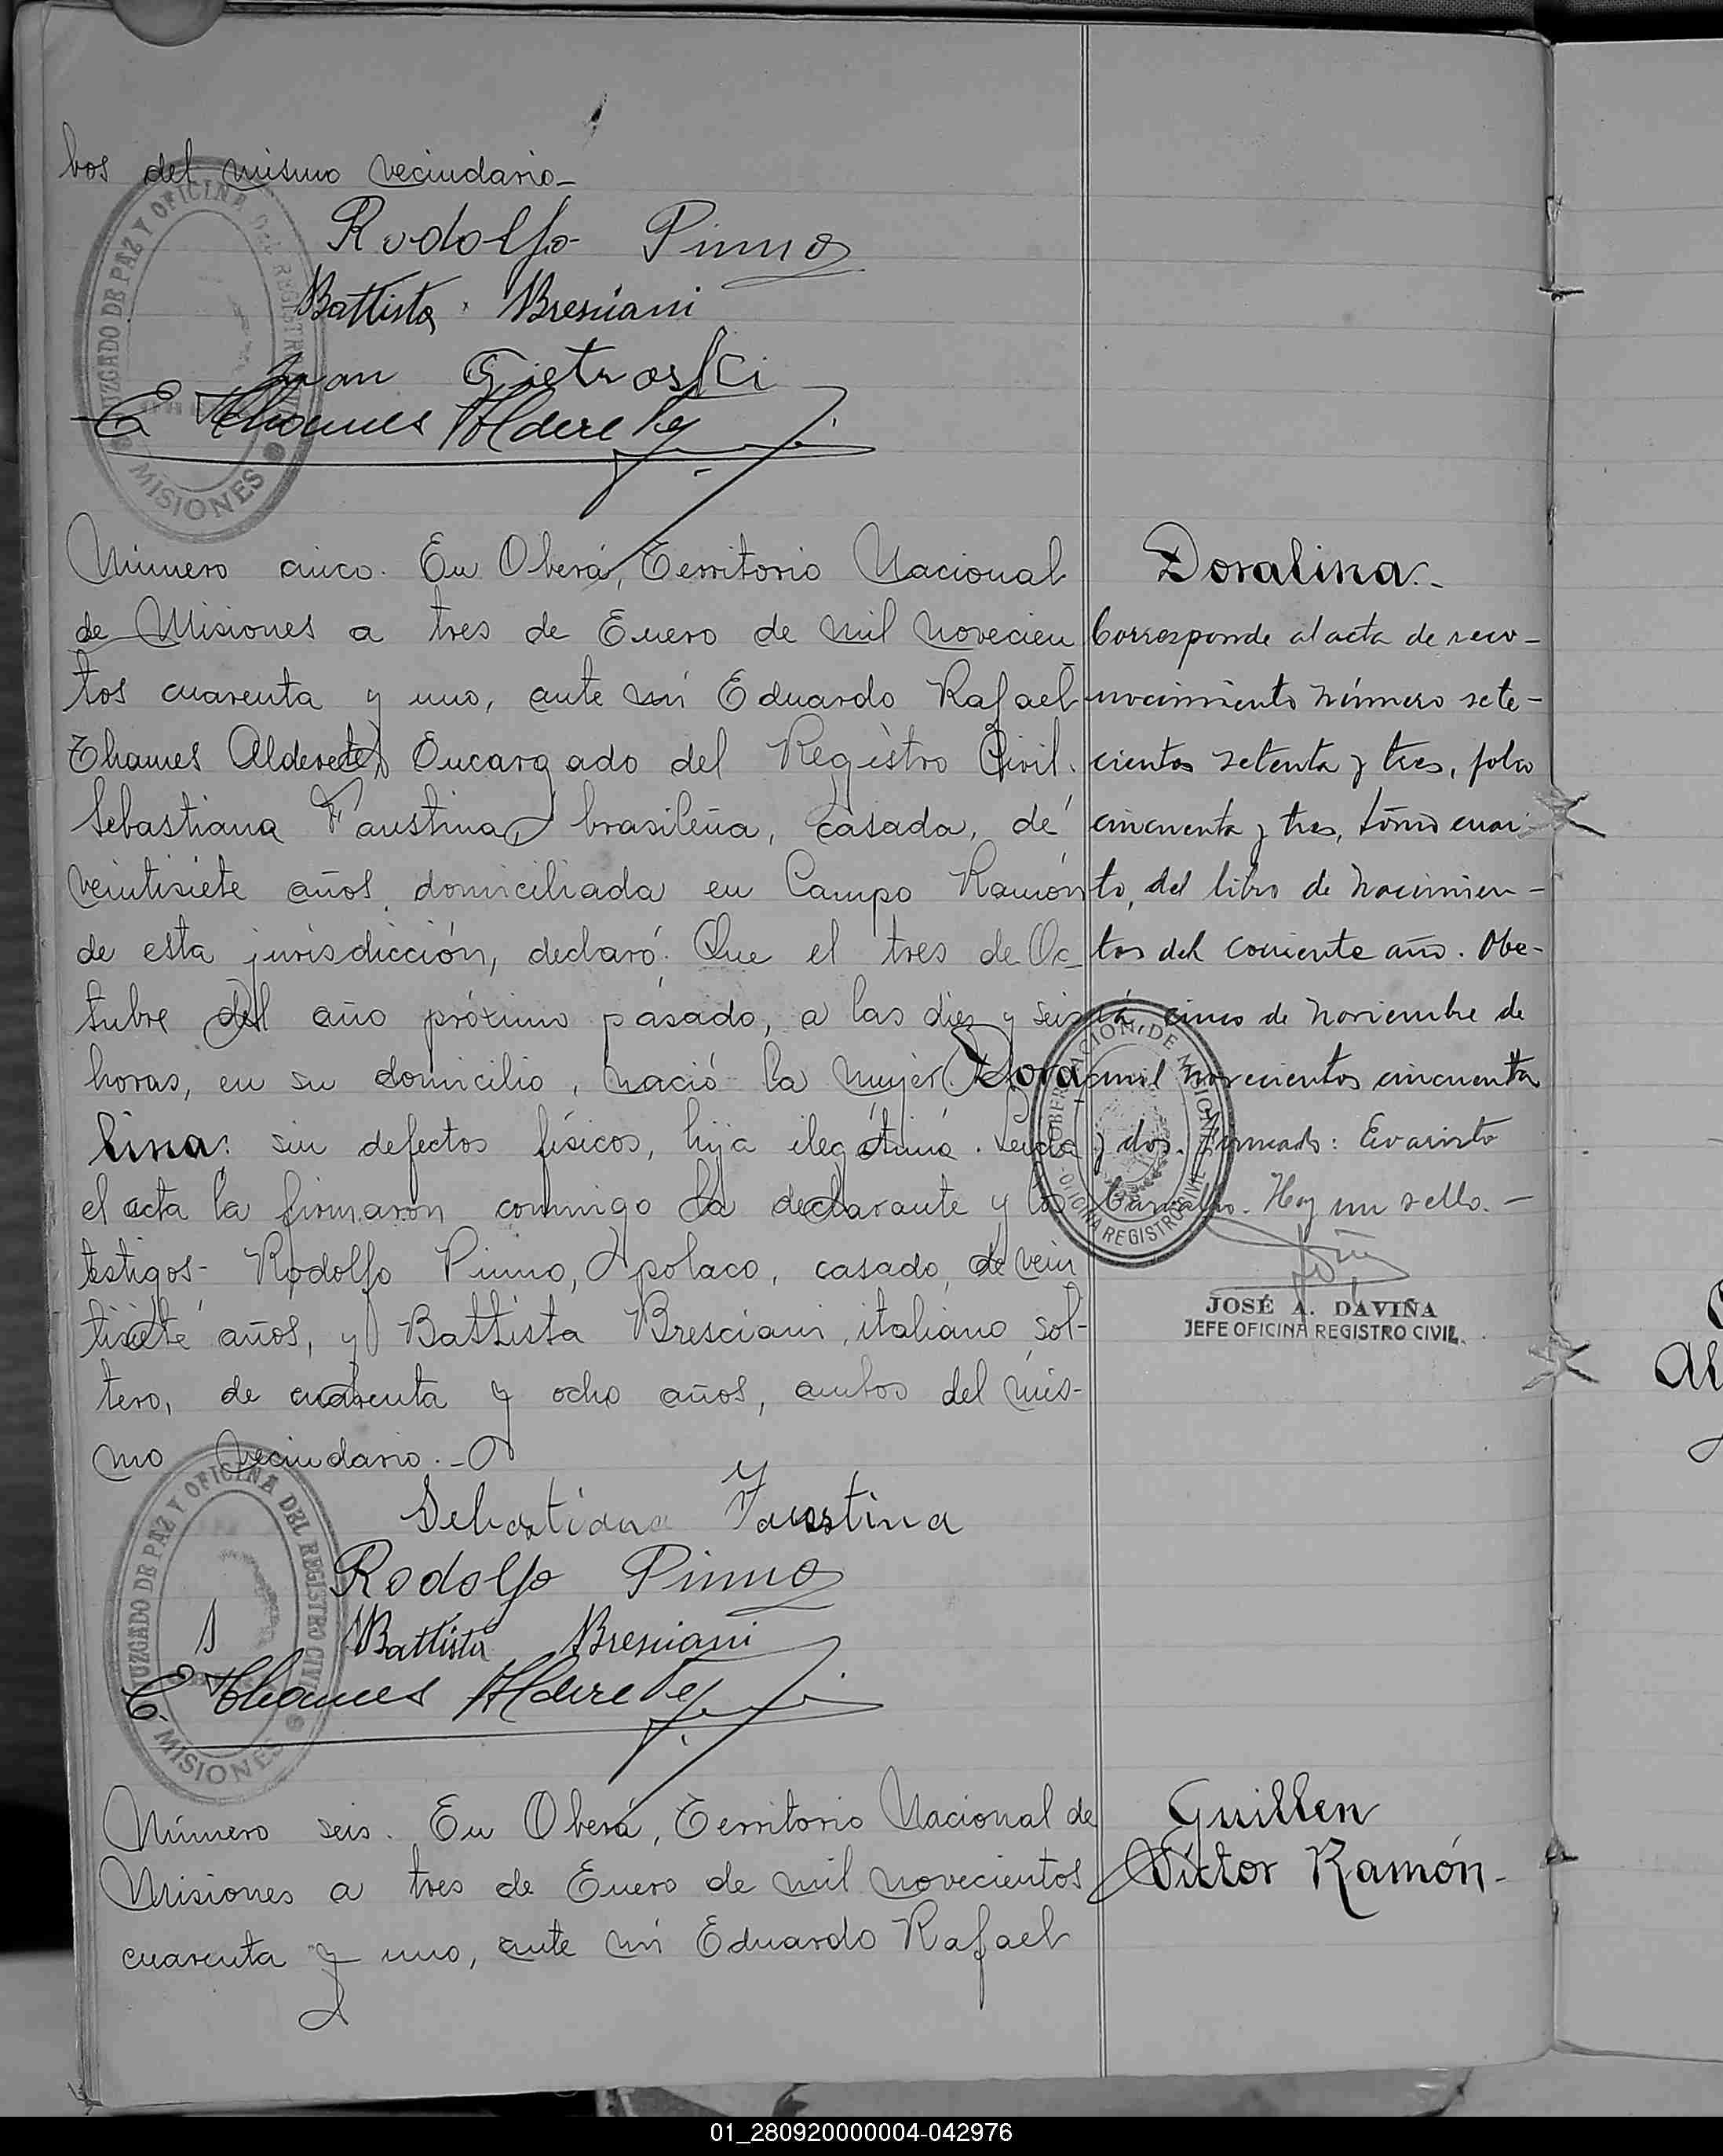 bos del mismo vecindario_
Rodolfo Pinno
Battista Bresciani
Juan Gietroski
E Thames Alderete
JUZGADO DE PAZ Y OFICINA DEL REGISTRO CIVIL
MISIONES
Número cinco. En Oberá, Territorio Nacional
de Misiones a tres de Enero de mil novecien
tos cuarenta y uno, ante mí Eduardo Rafael
Thames Alderete, Encargado del Registro Civil.
Sebastiana Faustina, brasileña, casada, de
veintisiete años, domiciliada en Campo Ramón
de esta jurisdicción, declaró: Que el tres de Oc_
tubre del año próximo pasado, a las diez y seis
horas, en su domicilio, nació la mujer Dora
lina: sin defectos físicos, hija ilegítima. Leida
el acta la firmaron conmigo la declarante y los
testigos- Rodolfo Pinno, polaco, casado, de vein
tisiete años, y Battista Bresciani, italiano, sol-
tero, de cuarenta y ocho años, ambos del mis-
mo vecindario.-
Doralina.-
Corresponde al acta de reco-
nocimiento número sete-
cientos setenta y tres, folio
cincuenta y tres, tómo cuar
to, del libro de Nacimien-
tos del corriente año. Obe-
rá cinco de Noviembre de
mil novecientos cincuenta
y dos. Firmado: Evaristo
Hay un sello.-
GOBERNACION DE MISIONES
OFICINA REGISTRO CIVIL
JOSÉ A. DAVIÑA
JEFE OFICINA REGISTRO CIVIL.
Sebastiana Faustina
Rodolfo Pinno
Battista Bresciani
E. Thames Alderete
JUZGADO DE PAZ Y OFICINA DEL REGISTRO CIVIL
MISIONES
Número seis. En Oberá, Territorio Nacional de
Misiones a tres de Enero de mil novecientos
cuarenta y uno, ante mí Eduardo Rafael
Guillen
Víctor Ramón-
01_280920000004-042976